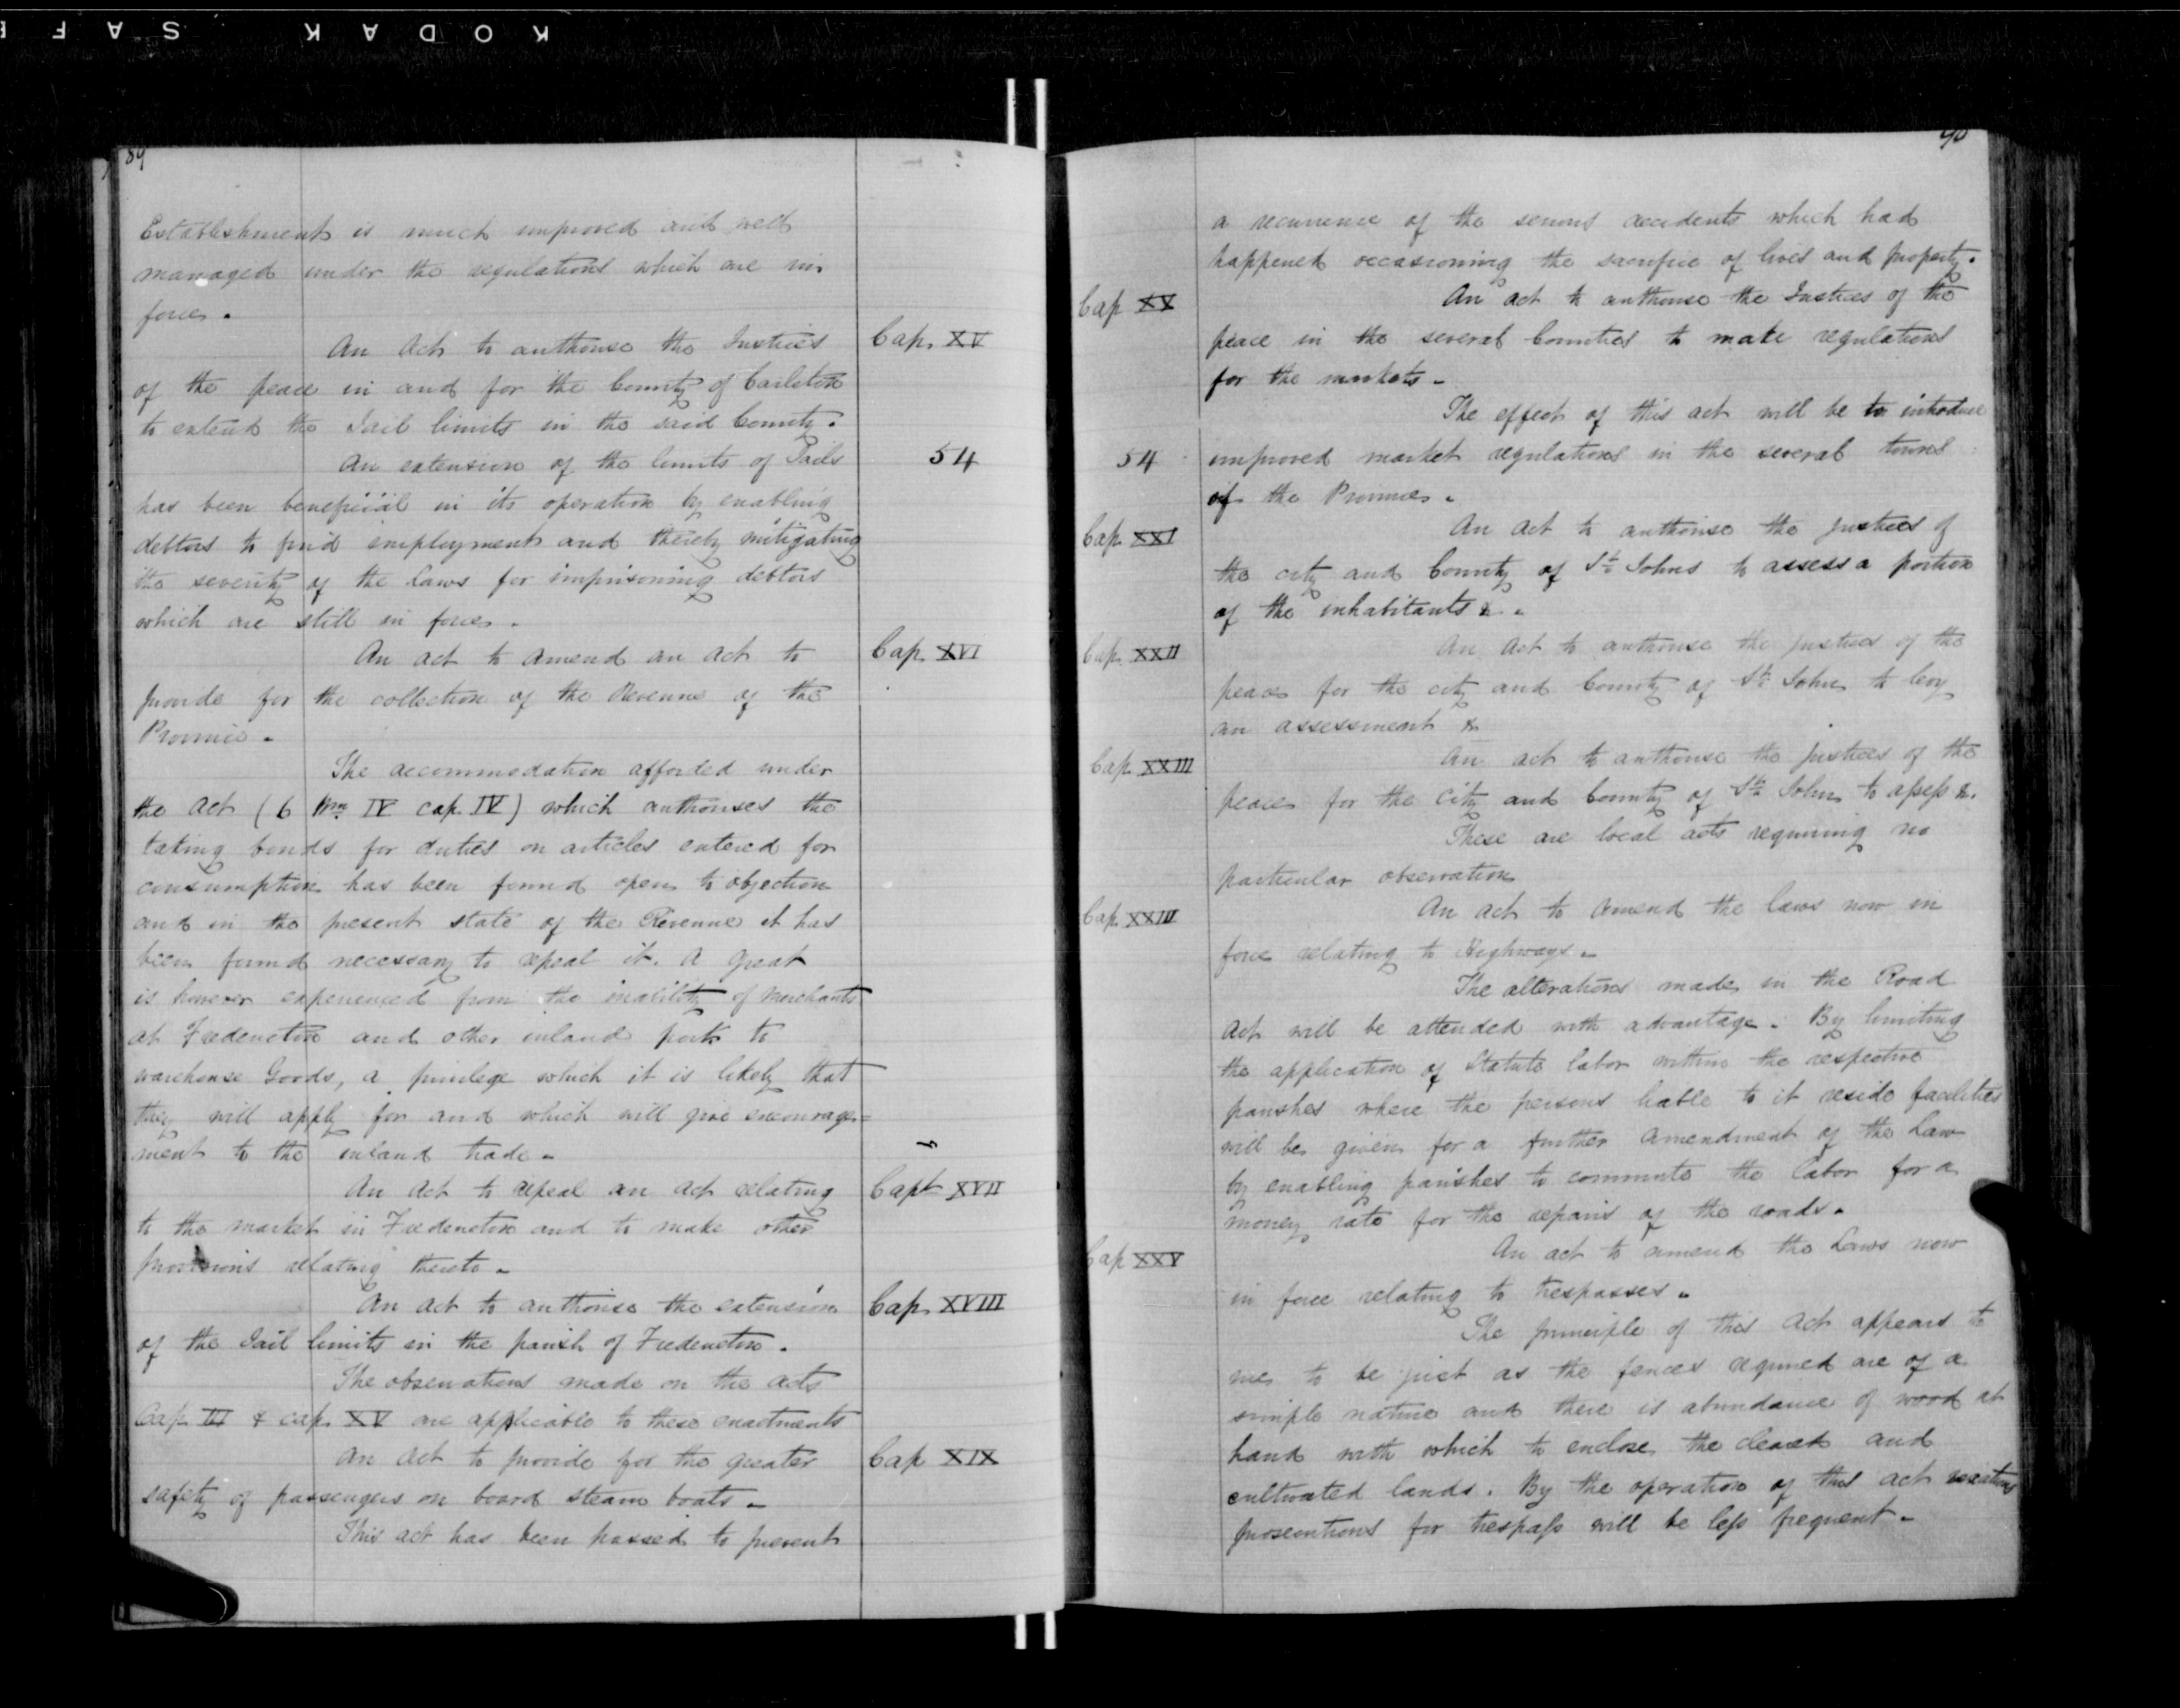 KODAK SAFE
89
Establishment is much improved and well
managed under the regulations which are in
force.
An Act to authorise the Justices
Cap. XV
of the peace in and for the County of Carleton
to extend the Jail limits in the said County.
An extension of the limits of Jails
54
has been beneficial in its operation by enabling
debtors to find employment and thereby mitigating
the severity of the Laws for imprisoning debtors
which are still in force.
An act to amend an act to
Cap. XVI
provide for the collection of the Revenue of the
Province.
The accommodation afforded under
the act (6 Wm IV cap. IV) which authorises the
taking bonds for duties on articles entered for
consumption has been found open to objection
and in the present state of the Revenue it has
been found necessary to repeal it. A great
is however experienced from the inability of Merchants
at Fredericton and other inland ports to
warehouse Goods, a privilege which it is likely that
they will apply for and which will give encourage=
ment to the inland trade.
An Act to repeal an act relating
Capt XVII
to the market in Fredericton and to make other
provisions relating thereto.
An act to authorise the extension
Cap. XVIII
of the Jail limits in the parish of Fredericton.
The observations made on the acts
Cap. III & cap. XV are applicable to these enactments
An Act to provide for the greater
Cap XIX
safety of passengers on board steam boats.
This act has been passed to prevent
90
a recurrence of the serious accidents which had
happened occasioning the sacrifice of lives and property.
Cap XX
An act to authorise the Justices of the
peace in the several Counties to make regulations
for the markets.
The effect of this act will be to introduce
54
improved market regulations in the several towns
of the Province.
Cap. XXI
An act to authorise the justices of
the city and County of St Johns to assess a portion
of the inhabitants &.
Cap. XXII
An Act to authorise the justices of the
peace for the city and County of St John to levy
an assessment &
Cap. XXIII
An act to authorise the justices of the
peace for the city and County of St John to assess &.
These are local acts requiring no
particular observation
Cap. XXIII
An act to amend the laws now in
force relating to Highways.
The alterations made in the Road
Act will be attended with advantage. By limiting
the application of Statute labor within the respective
parishes where the persons liable to it reside facilities
will be given for a further amendment of the Law
by enabling parishes to commute the labor for a
money rate for the repairs of the roads.
Cap XXV
An act to amend the Laws now
in force relating to trespasses.
The principle of this Act appears to
me to be just as the fences required are of a
simple nature and there is abundance of wood at
hand with which to enclose the cleared and
cultivated lands. By the operation of this act vexatious
prosecutions for trespass will be less frequent.